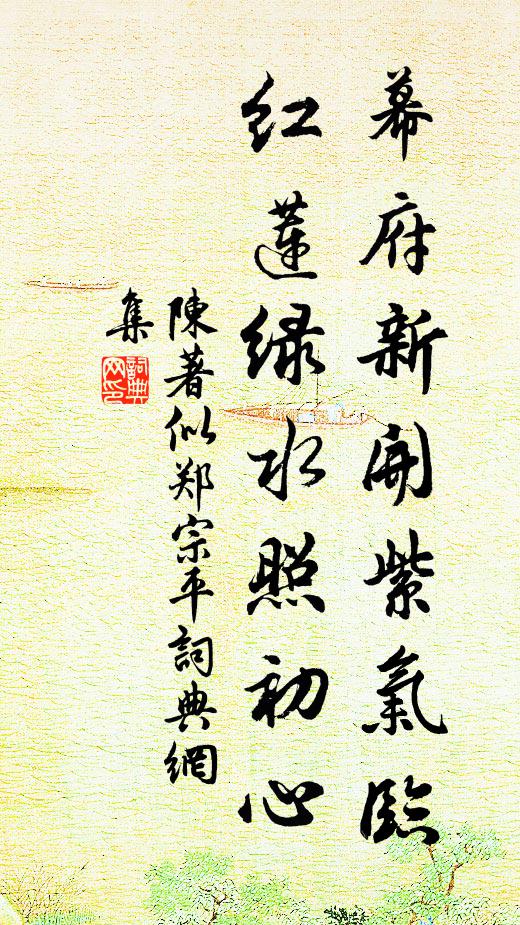 幕府新開紫氣臨
紅蓮緑水照初心
陳著似郑宗平詞典網
集
詞典网印